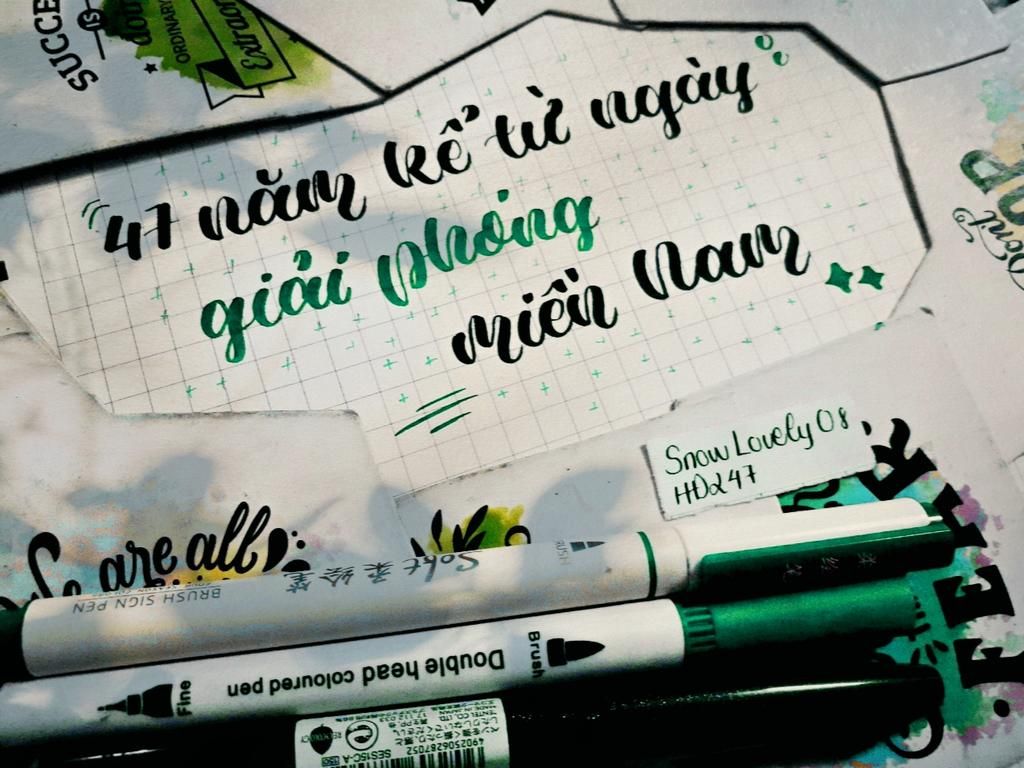 SUCCE
IS
ORDINARY
47 năm kể từ ngày
giải phóng
miền Nam
Snow Lovely 08
HD247
are all
Soft 柔绘笔
BRUSH SIGN PEN
BRUSH
Brush
Double head coloured pen
Fine
SES15C-A
4902506287052